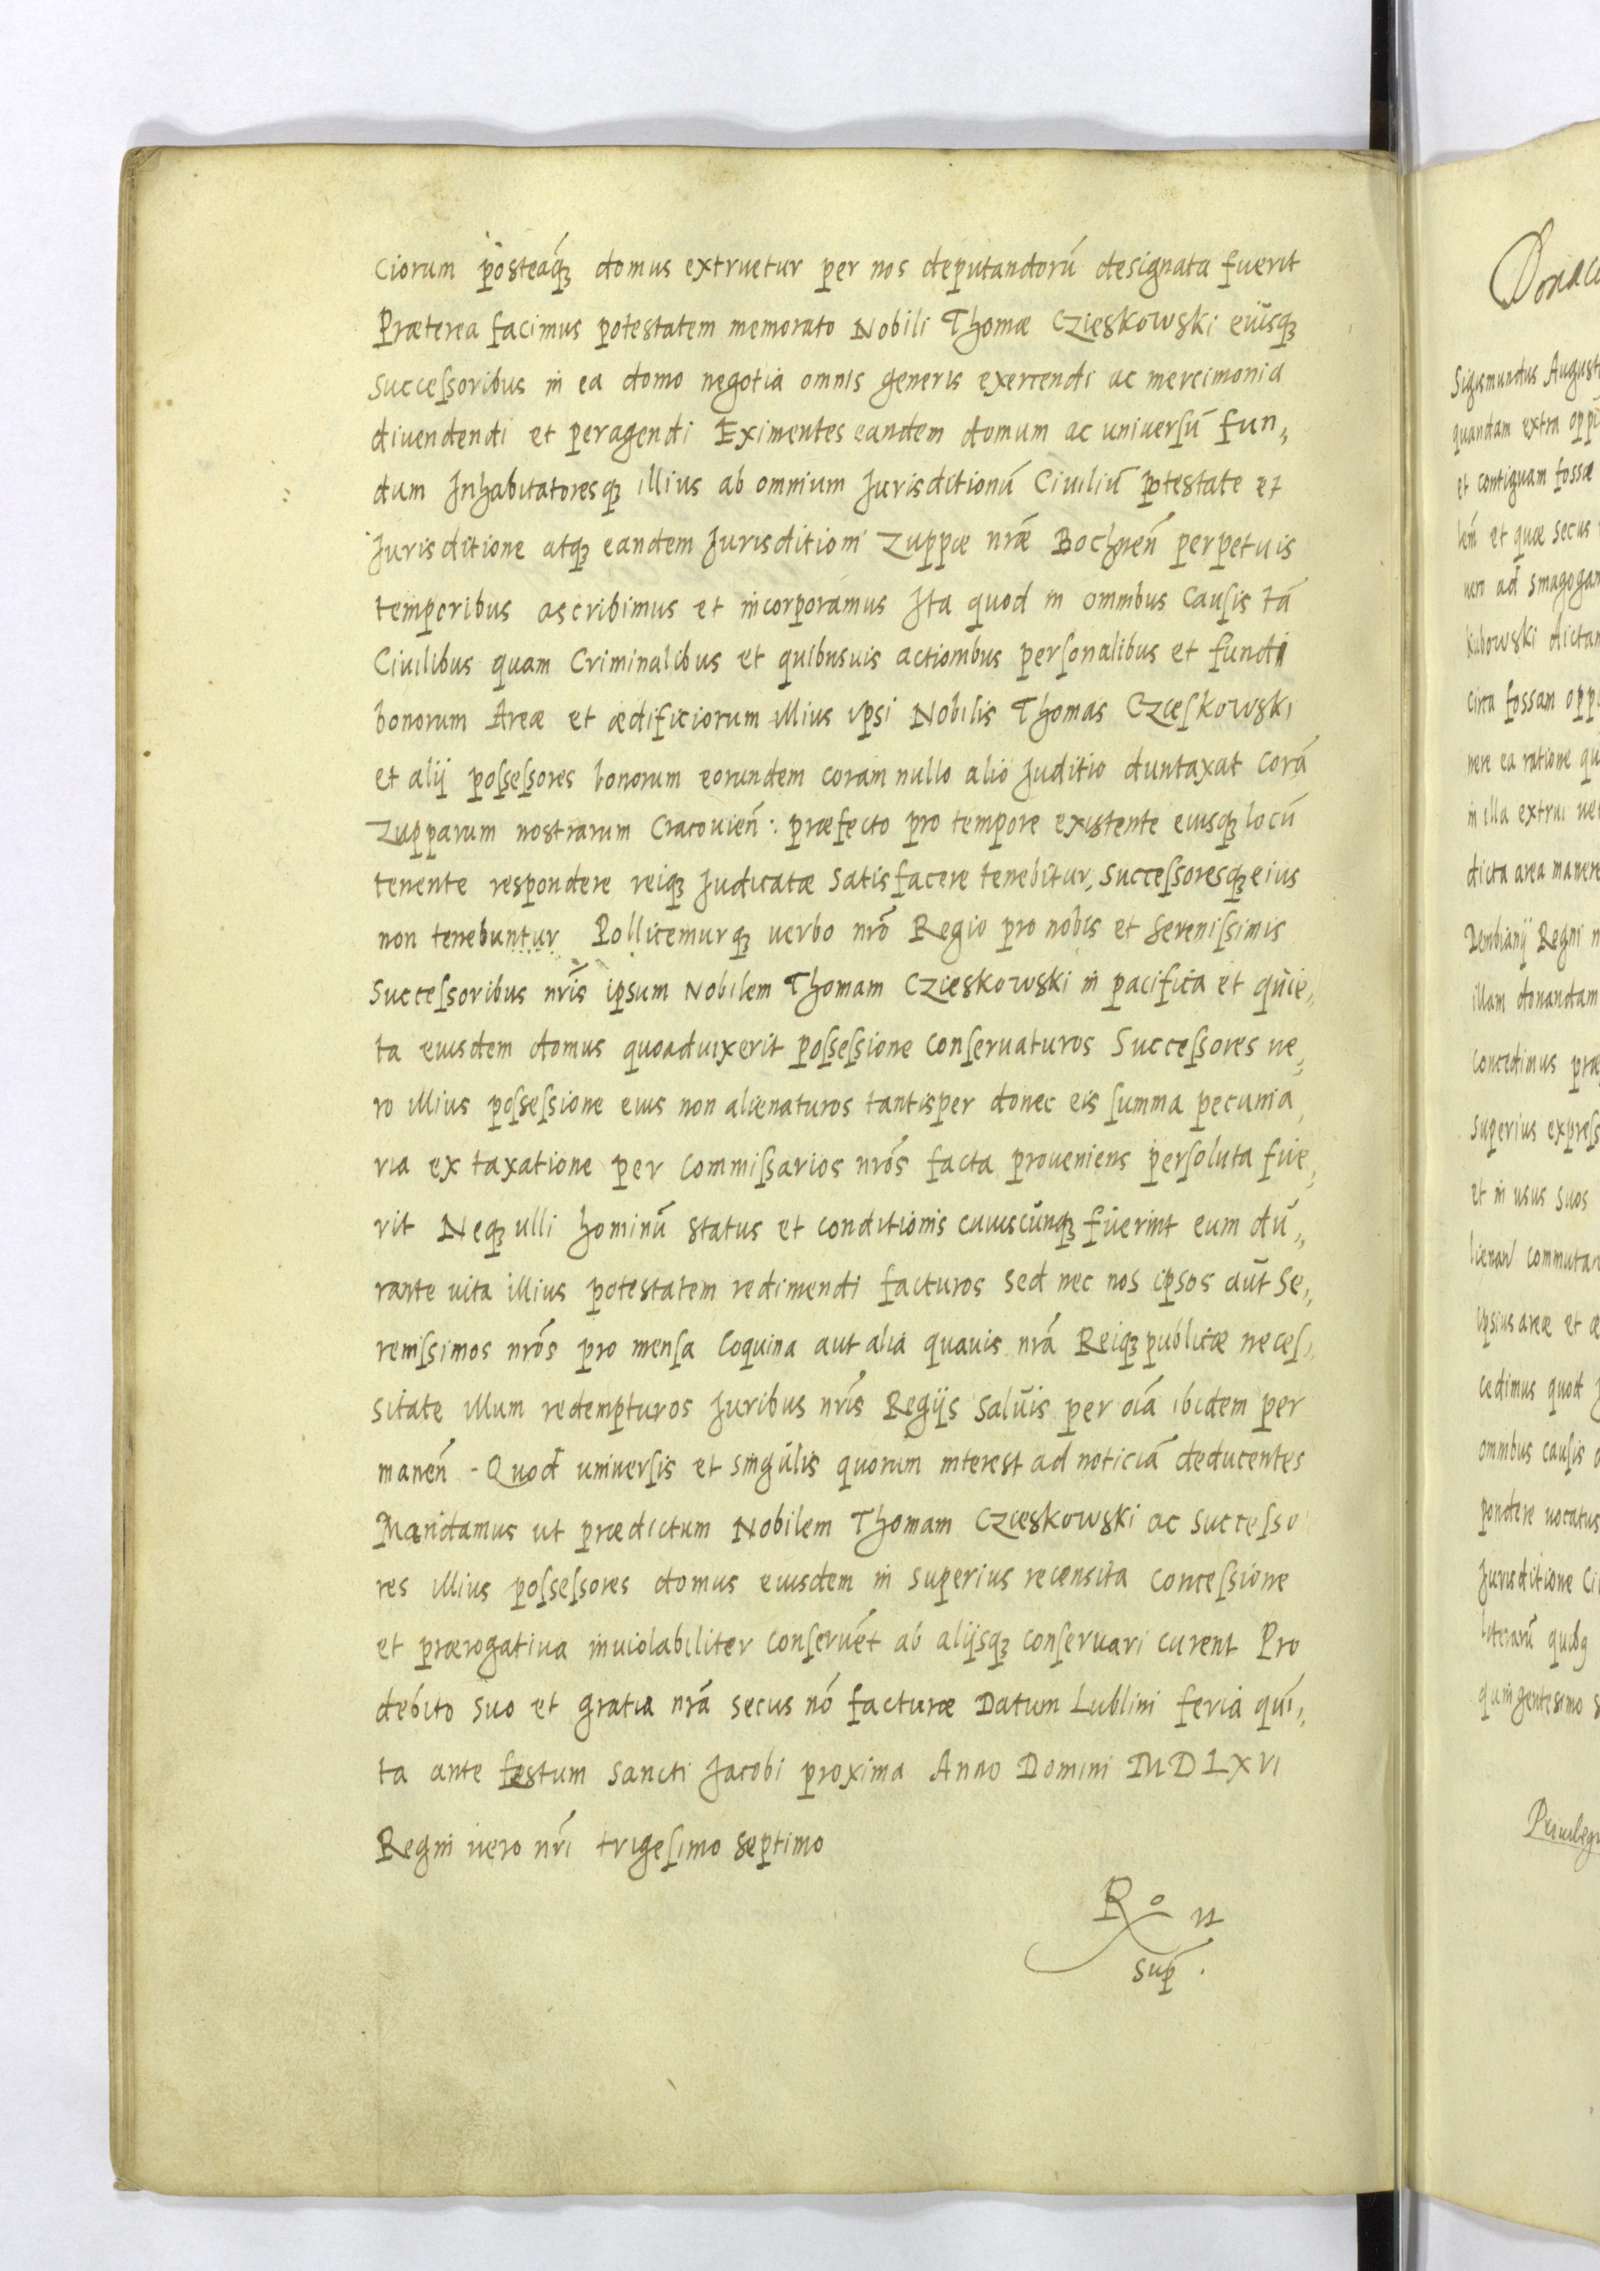 Ciorum posteaq̃ domus extruetur per nos deputandorũ designata fuerit
Præterea facimus potestatem memorato Nobili Thomæ Czieskowski eiusq3
Succeſsoribus in ea domo negotia omnis generis exercendi ac mercimonia
divendendi et peragendi Eximentes eandem domum ac univerſũ fun„
dum Inhabitatoresq3 illius ab omnium Jurisditionũ Civiliũ potestate et
Jurisditione atq3 eandem Jurisditioni Zuppæ nrǽ Bochneñ perpetuis
temporibus ascribimus et incorporamus Ita quod in omnibus Cauſis tã
Civilibus quam Criminalibus et quibusuis actionibus perſonalibus et fundi
bonorum Areæ et ædificiorum illius ipsi Nobilis Thomas Czieſkowski
et alij poſseſsores bonorum eorundem coram nullo alio Juditio duntaxat Corã
Zupparum nostrarum Cracovieñ: præfecto pro tempore existente eiusq3 locũ
tenente respondere reiq3 Judicatæ Satisfacere tenebitur, Succeſsoresq3 eius
non tenebuntur Pollicemurq3 verbo nrõ Regio pro nobis et Sereniſsimis
Succeſsoribus nrĩs ipsum Nobilem Thomam Czieskowski in pacifica et quie„
ta eiusdem domus quoaduixerit poſseſsione Conſervaturos Succeſsores ve„
ro illius poſseſsione eius non alienaturos tantisper donec eis ſumma pecunia
ria ex taxatione per Commiſsarios nrõs facta proveniens perſoluta fue„
rit Neq3 ulli hominũ status et conditionis cuiuscunq3 fuerint eum du„
rante vita illius potestatem redimendi facturos Sed nec nos ipsos aut Se„
reniſsimos nrõs pro menſa Coquina aut alia quavis nrã Reiq3 publicæ neceſ„
sitate illum redempturos Juribus nrĩs Regijs Salvis per oĩa ibidem per
maneñ - Quod univerſis et singulis quorum interest ad noticiã deducentes
Mandamus ut prædictum Nobilem Thomam Czieskowski ac Succeſso
res illius poſseſsores domus eiusdem in superius recensita Conceſsione
et prærogativa inviolabiliter Conſervẽt ab alijsq3 conſervari curent Pro
debito suo et gratia nrã secus nõ facturæ Datum Lublini feria quĩ„
ta ante festum Sancti Jacobi proxima Anno Domini MDLXVI
Regni vero nrĩ trigeſimo septimo
Rº
sup̃.
Sigismundus August
quandam extra oppi
et contiguam fossæ
et quæ secus
kubowski dictam
circa fossam oppi
nere ea ratione qu
in illa extrui ve
dicta area manere
Regni n
illam donandam
Concedimus præ
Superius expreſs
et in usus suos
commutan
ipsius areæ et æ
cedimus quod J
omnibus cauſis
pondere vocatus
Jurisditione Ci
literarũ
quingentesimo s